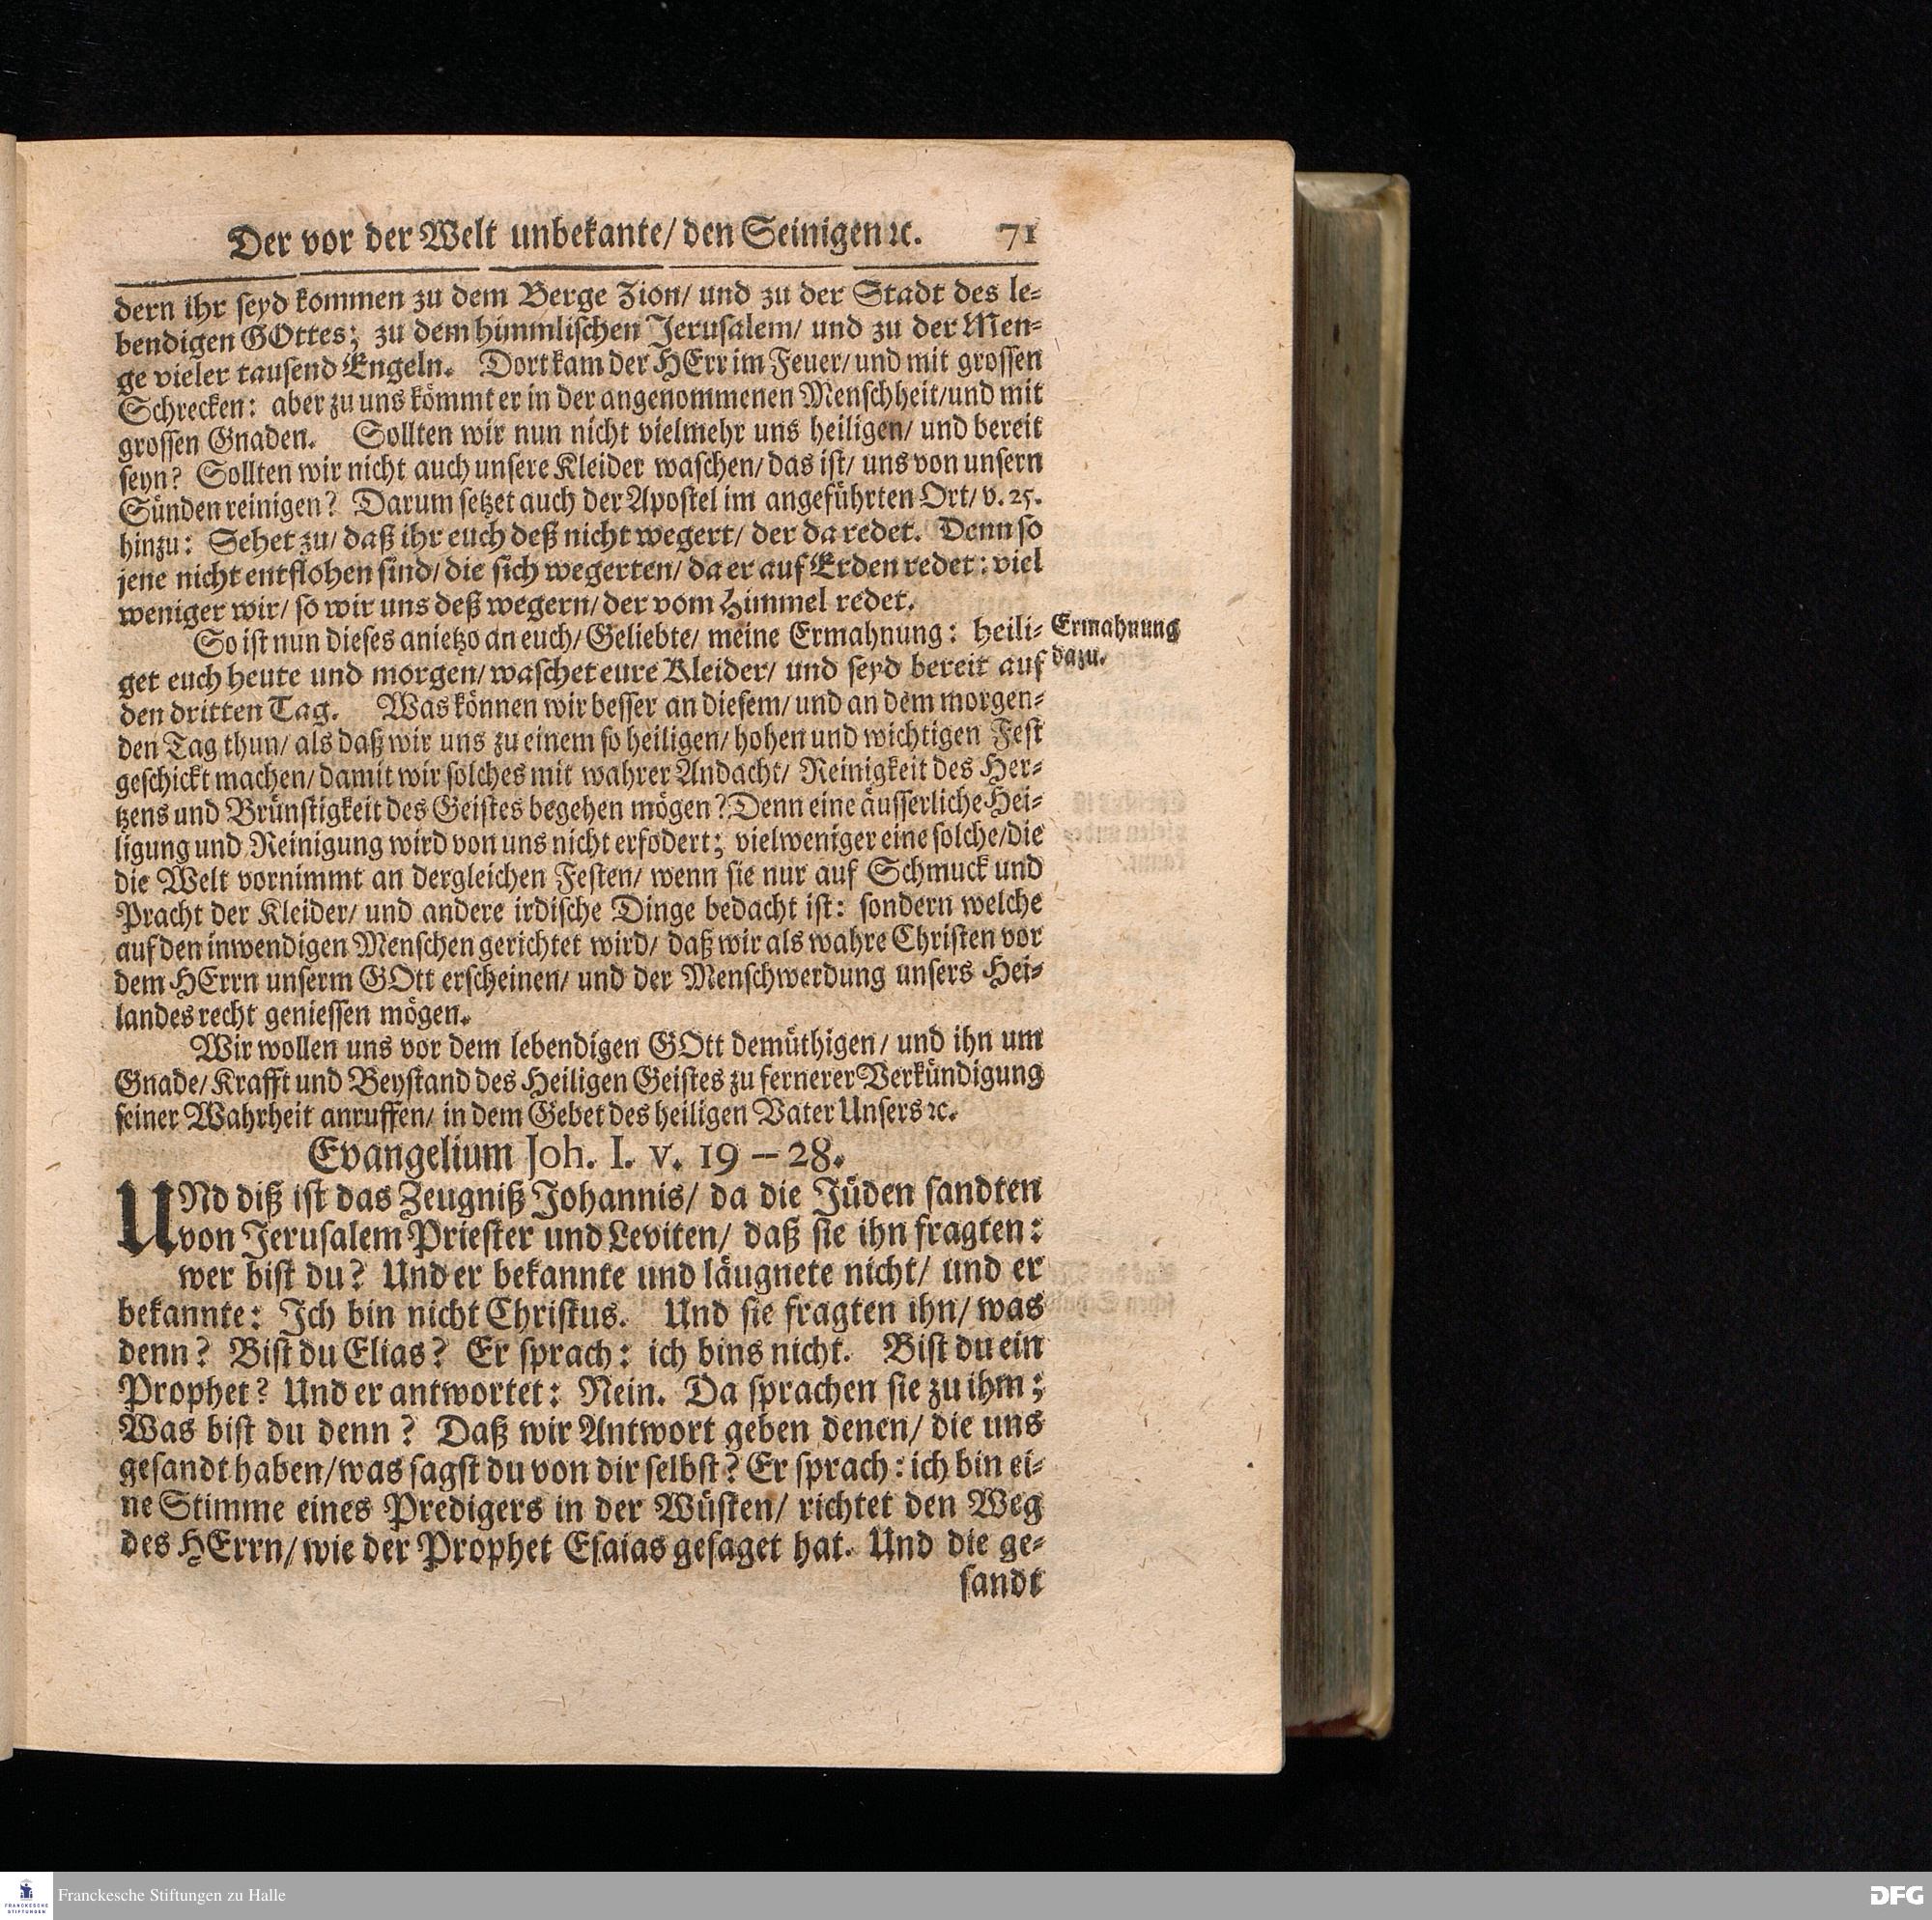 Der vor der Welt unbekante/ den Seinigen ꝛc. 71
dern ihr seyd kommen zu dem Berge Zion/ und zu der Stadt des le-
bendigen GOttes; zu dem himmlischen Jerusalem/ und zu der Men-
ge vieler tausend Engeln. Dort kam der HErr im Feuer/ und mit grossen
Schrecken: aber zu uns kömmt er in der angenommenen Menschheit/ und mit
grossen Gnaden. Sollten wir nun nicht vielmehr uns heiligen/ und bereit
seyn? Sollten wir nicht auch unsere Kleider waschen/ das ist/ uns von unsern
Sünden reinigen? Darum setzet auch der Apostel im angeführten Ort/ v. 25.
hinzu: Sehet zu/ daß ihr euch deß nicht wegert/ der da redet. Denn so
jene nicht entflohen sind/ die sich wegerten/ da er auf Erden redet: viel
weniger wir/ so wir uns deß wegern/ der vom Himmel redet.
So ist nun dieses anietzo an euch/ Geliebte/ meine Ermahnung: heili-
Ermahnung
get euch heute und morgen/ waschet eure Kleider/ und seyd bereit auf
dazu.
den dritten Tag. Was können wir besser an diesem/ und an dem morgen-
den Tag thun/ als daß wir uns zu einem so heiligen/ hohen und wichtigen Fest
geschickt machen/ damit wir solches mit wahrer Andacht/ Reinigkeit des Her-
tzens und Brünstigkeit des Geistes begehen mögen? Denn eine äusserliche Hei-
ligung und Reinigung wird von uns nicht erfodert; vielweniger eine solche/ die
die Welt vornimmt an dergleichen Festen/ wenn sie nur auf Schmuck und
Pracht der Kleider/ und andere irdische Dinge bedacht ist: sondern welche
auf den inwendigen Menschen gerichtet wird/ daß wir als wahre Christen vor
dem HErrn unserm GOtt erscheinen/ und der Menschwerdung unsers Hei-
landes recht geniessen mögen.
Wir wollen uns vor dem lebendigen GOtt demüthigen/ und ihn um
Gnade/ Krafft und Beystand des Heiligen Geistes zu fernerer Verkündigung
seiner Wahrheit anruffen/ in dem Gebet des heiligen Vater Unsers ꝛc.
Evangelium Joh. I. v. 19 – 28.
UNd diß ist das Zeugniß Johannis/ da die Jüden sandten
von Jerusalem Priester und Leviten/ daß sie ihn fragten:
wer bist du? Und er bekannte und läugnete nicht/ und er
bekannte: Ich bin nicht Christus. Und sie fragten ihn/ was
denn? Bist du Elias? Er sprach: ich bins nicht. Bist du ein
Prophet? Und er antwortet: Nein. Da sprachen sie zu ihm;
Was bist du denn? Daß wir Antwort geben denen/ die uns
gesandt haben/ was sagst du von dir selbst? Er sprach: ich bin ei-
ne Stimme eines Predigers in der Wüsten/ richtet den Weg
des HErrn/ wie der Prophet Esaias gesaget hat. Und die ge-
sandt
FRANCKESCHE
STIFTUNGEN
Franckesche Stiftungen zu Halle
DFG